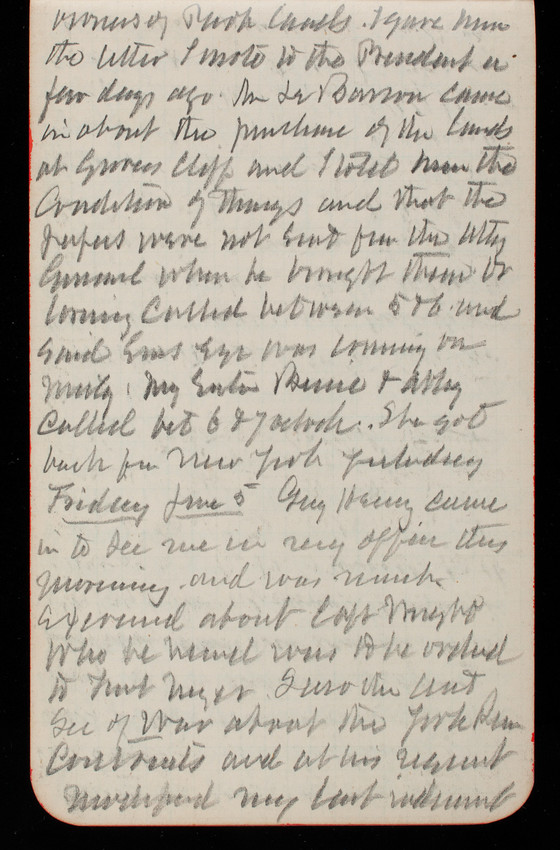 owners of Park lands. I gave him
the letter I wrote to the President a
few days ago. Mr Le Barron came
in about the purchase of the lands
at Grovers Cliff and I told him the
Condition of things and that the
papers were not sent from the Atty
General when he brought them Dr
Loring Called between 5 & 6 and
said Eye was coming on
nicely. My Sister & Abby
Called bet 6 & 7 oclock. She got
back from New York yesterday
Friday June 5 Guy Henry came
in to see me in my office this
morning and was much
exercised about Capt
who he heard was to be ordered
to Fort Myer. I saw the Asst
Sec of War about the
Contracts and at his request
modified my last